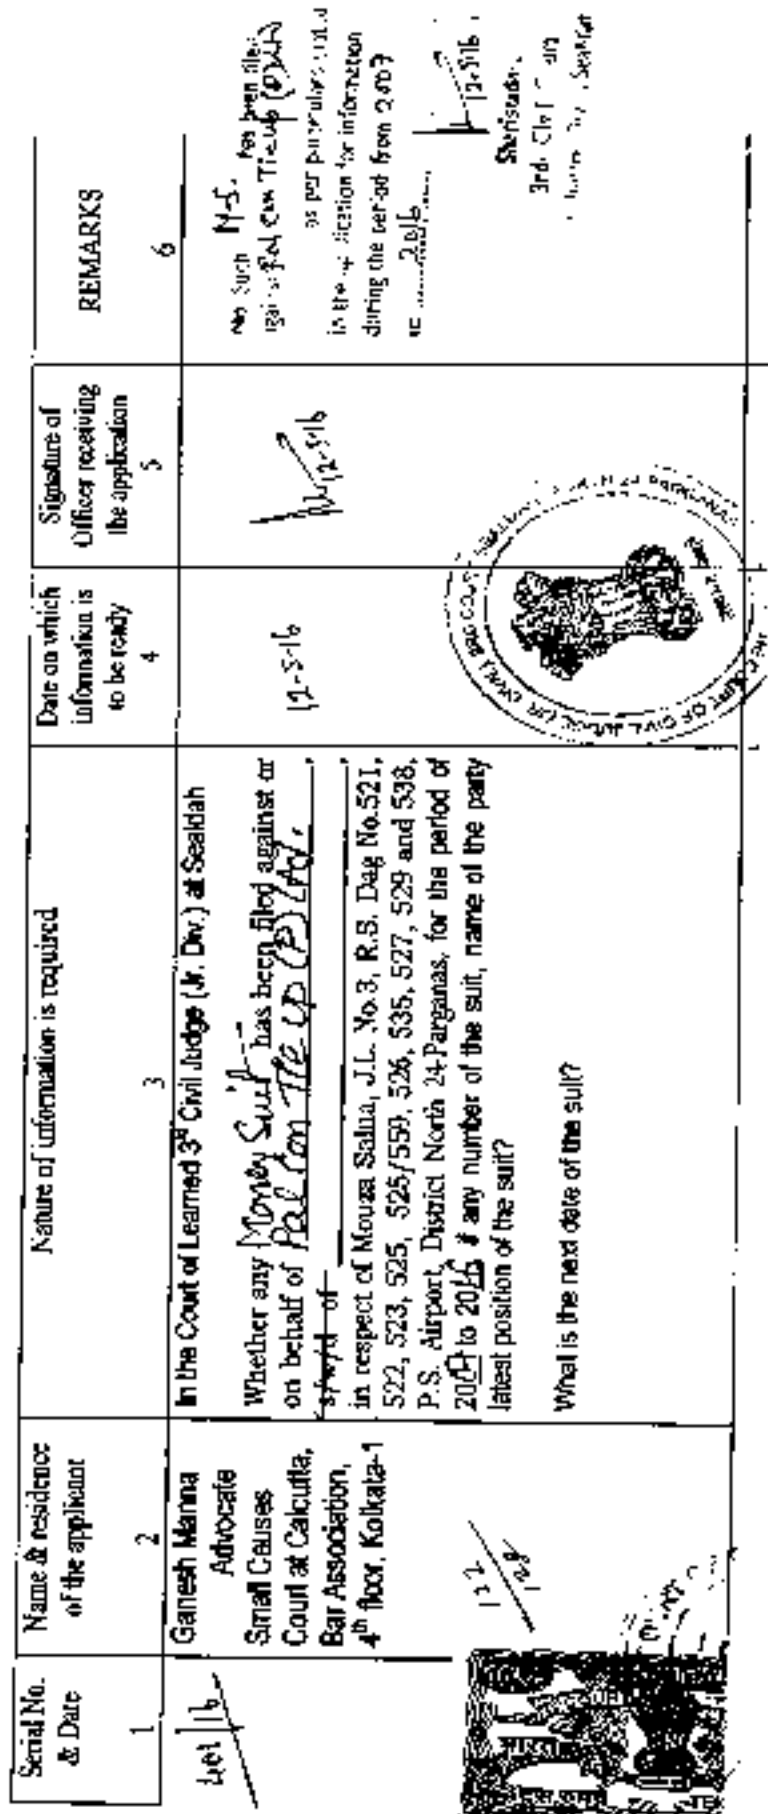 Serial No.
& Date
1
Name & residence
of the applicant
2
Nature of information is required
3
Date on which
information is
to be ready
4
Signature of
Officer receiving
the application
5
REMARKS
6
Ganesh Manna
Advocate
Small Causes
Court at Calcutta,
Bar Association,
4th floor, Kolkata-1
In the Court of Learned 3rd Civil Judge (Jr. Div.) at Sealdah
Whether any Money Suit has been filed against or
on behalf of Pal Con Tie up (P) Ltd.
s/w/d of
in respect of Mouza Salua, J.L. No.3, R.S. Dag No.521,
522, 523, 525, 525/559, 526, 535, 527, 529 and 538,
P.S. Airport, District North 24-Parganas, for the period of
2007 to 2016 if any number of the suit, name of the party
latest position of the suit?
What is the next date of the suit?
12-5-16
12-5-16
No Such M.S. has been filed
against Pal Con Tie up (P) Ltd
as per particulars
in the application for information
during the period from 2007
to 2016
12-5-16
Sheristadar
3rd Civil
Sealdah